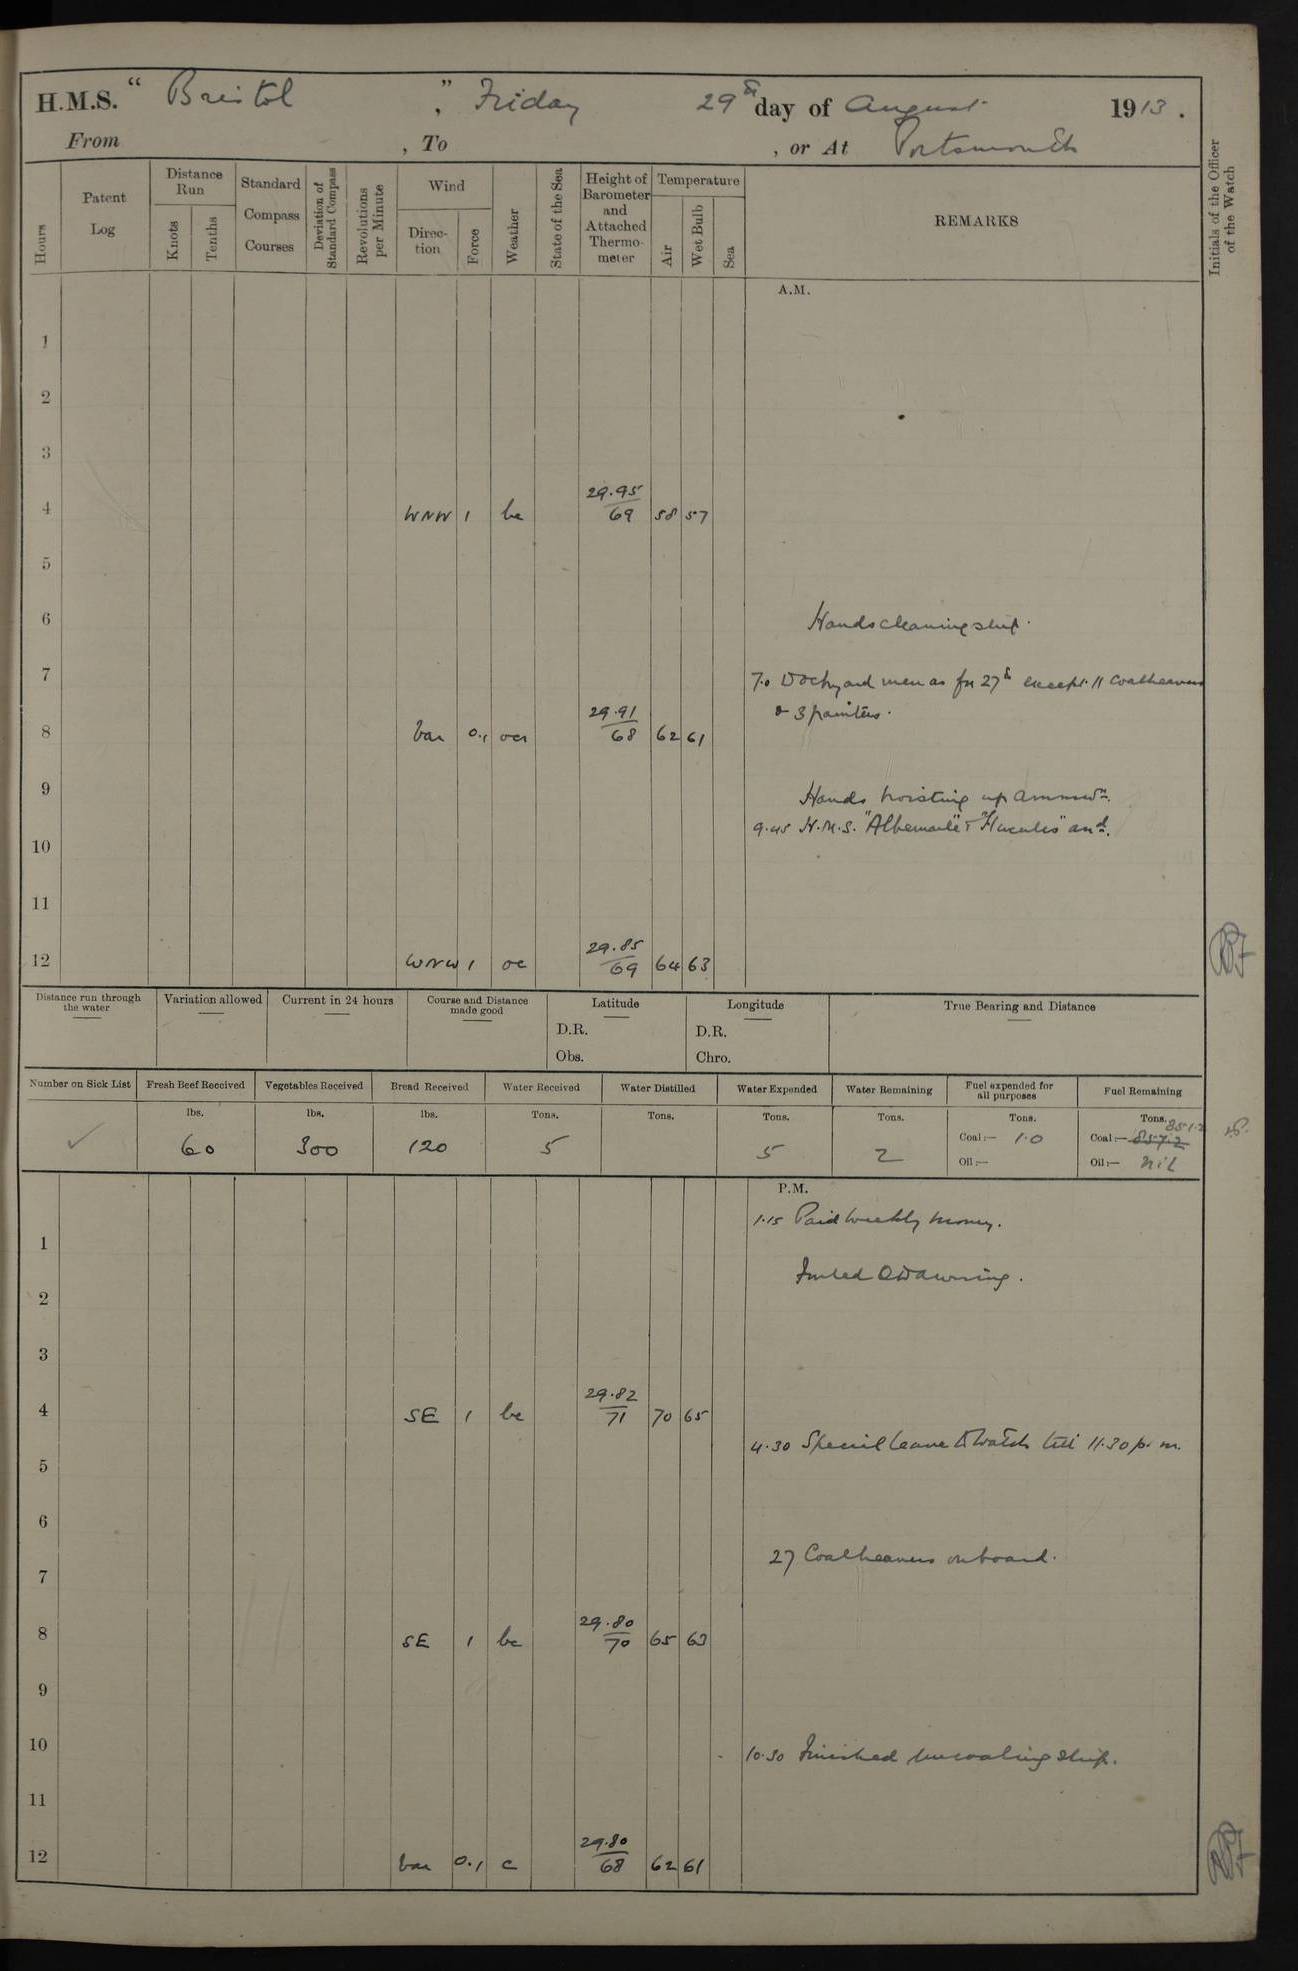 H.M.S. "Bristol", Friday 29th day of August 1913.
From , To , or At Portsmouth
Hours
Patent Log
Distance Run
Knots
Tenths
Standard Compass Courses
Deviation of Standard Compass
Revolutions per Minute
Wind
Direction
Force
Weather
State of the Sea
Height of Barometer and Attached Thermometer
Temperature
Air
Wet Bulb
Sea
REMARKS
Initials of the Officer of the Watch
A.M.
1
2
3
4 WNW 1 bc 29.95/69 58 57
5
6 Hands cleaning ship.
7
7.0 Dockyard men as for 27th except 11 Coalheavers
& 3 painters.
8 Var 0.1 29.91/68 62 61
9 Hands hoisting up ammun.
9.45 H.M.S. "Albemarle" & "Hercules" and.
10
11
12 WNW 1 oc 29.85/69 64 63
Distance run through the water
Variation allowed
Current in 24 hours
Course and Distance made good
Latitude
D.R.
Obs.
Longitude
D.R.
Chro.
True Bearing and Distance
Number on Sick List ✓
Fresh Beef Received lbs. 60
Vegetables Received lbs. 300
Bread Received lbs. 120
Water Received Tons. 5
Water Distilled Tons.
Water Expended Tons. 5
Water Remaining Tons. 2
Fuel expended for all purposes Tons. Coal:— 10 Oil:—
Fuel Remaining Tons. Coal:— 857.2 851.2 Oil:— nil
P.M.
1.15 Paid weekly money.
1
Furled QD awning.
2
3
4 SE 1 bc 29.82/71 70 65
4.30 Special leave to Watch till 11.30 p.m.
5
6
27 Coalheavers onboard.
7
8 SE 1 bc 29.80/70 65 63
9
10 10.30 Finished uncoaling ship.
11
12 Var 0.1 c 29.80/68 62 61